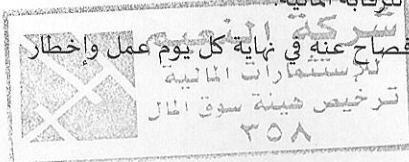 للرقابة المالية.
شركة النعيم
فصاح عنه في نهاية كل يوم عمل وإخطار
للإستثمارات المالية
ترخيص هيئة سوق المال
٣٥٨